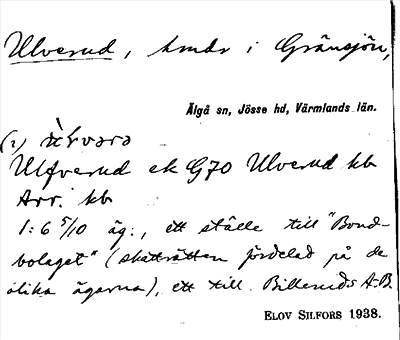 Ulverud, hmdr i Gränsjön,
Älgå sn, Jösse hd, Värmlands län.
(?)
Ulfverud ek G70 Ulverud kb
Arr. kb
1:6 5/10 äg., ett ställe till "Bond-
bolaget" (skatträtten fördelad på de
olika ägarna), ett till Billeruds A-B.
ELOV SILFORS 1938.